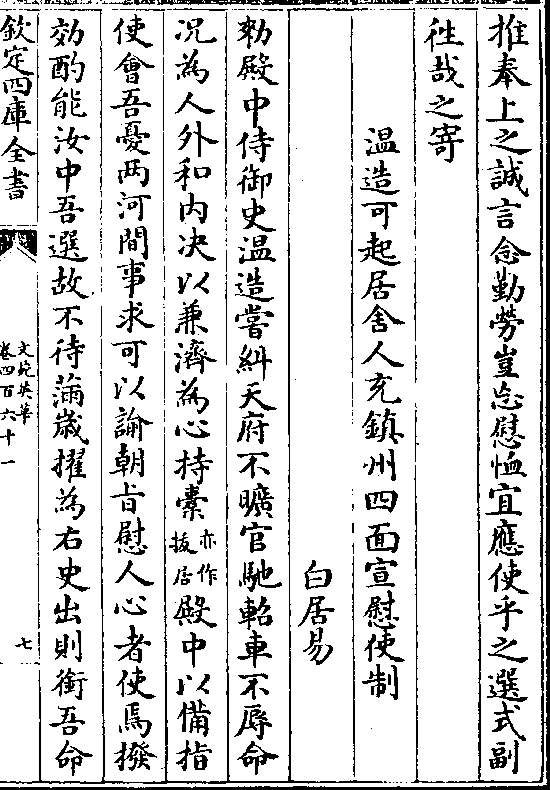 推奉上之誠言念勤勞豈忘慰恤宜應使乎之選式副
往哉之寄
温造可起居舍人充鎮州四面宣慰使制
白居易
勑殿中侍御史温造嘗糾天府不曠官馳軺車不辱命
况為人外和内决以兼濟為心持橐亦作拔居殿中以備指
使會吾憂兩河間事求可以諭朝㫖慰人心者使焉撥
効酌能汝中吾選故不待滿歲擢為右史出則銜吾命
欽定四庫全書
文苑英華
卷四百六十一
七